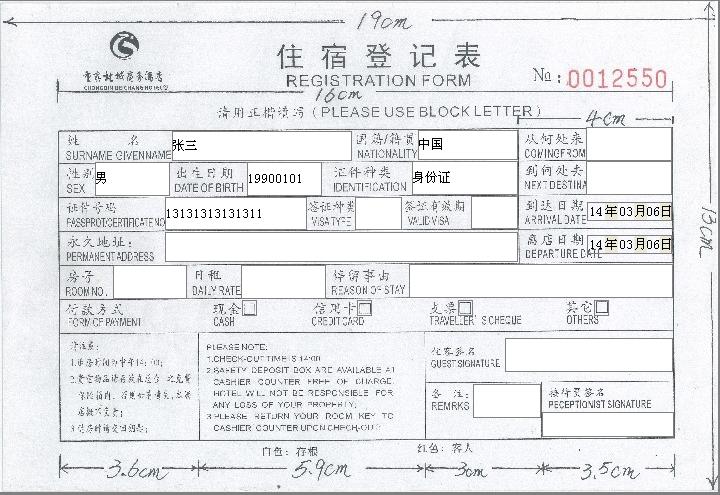 19cm
住宿登记表
重庆北城商务酒店
CHONGQIN BEICHANG HOTEL
REGISTRATION FORM
No: 0012550
16cm
请用正楷填写 (PLEASE USE BLOCK LETTER)
4cm
姓 名 张三 国籍/籍贯 中国 从何处来
SURNAME GIVENNAME NATIONALITY COMINGFROM
性别 男 出生日期 19900101 证件种类 身份证 到何处去
SEX DATE OF BIRTH IDENTIFICATION NEXT DESTINA
证件号码 13131313131311 签证种类 签证有效期 到达日期 14年03月06日
PASSPROT/CERTIFICATE NO VISA TYPE VALID VISA ARRIVAL DATE
永久地址: 离店日期 14年03月06日
PERMANENT ADDRESS DEPARTURE DATE
13cm
房子 日租 停留事由
ROOM NO. DAILY RATE REASON OF STAY
付款方式 现金 信用卡 支票 其它
FORM OF PAYMENT CASH CREDIT CARD TRAVELLER'S CHEQUE OTHERS
请注意:
1.退房时间为中午14:00;
PLEASE NOTE:
1.CHECK-OUT TIME IS 14:00
2.SAFETY DEPOSIT BOX ARE AVAILABLE AT
CASHIER COUNTER FREE OF CHARGE,
HOTEL WILL NOT BE RESPONSIBLE FOR
ANY LOSS OF YOUR PROPERTY;
3.PLEASE RETURN YOUR ROOM KEY TO
CASHIER COUNTER UPON CHECK-OUT;
住客签名
GUEST SIGNATURE
备 注: 接待员签名
REMRKS PECEPTIONIST SIGNATURE
白色: 存根 红色: 客人
3.6cm 5.9cm 3cm 3.5cm